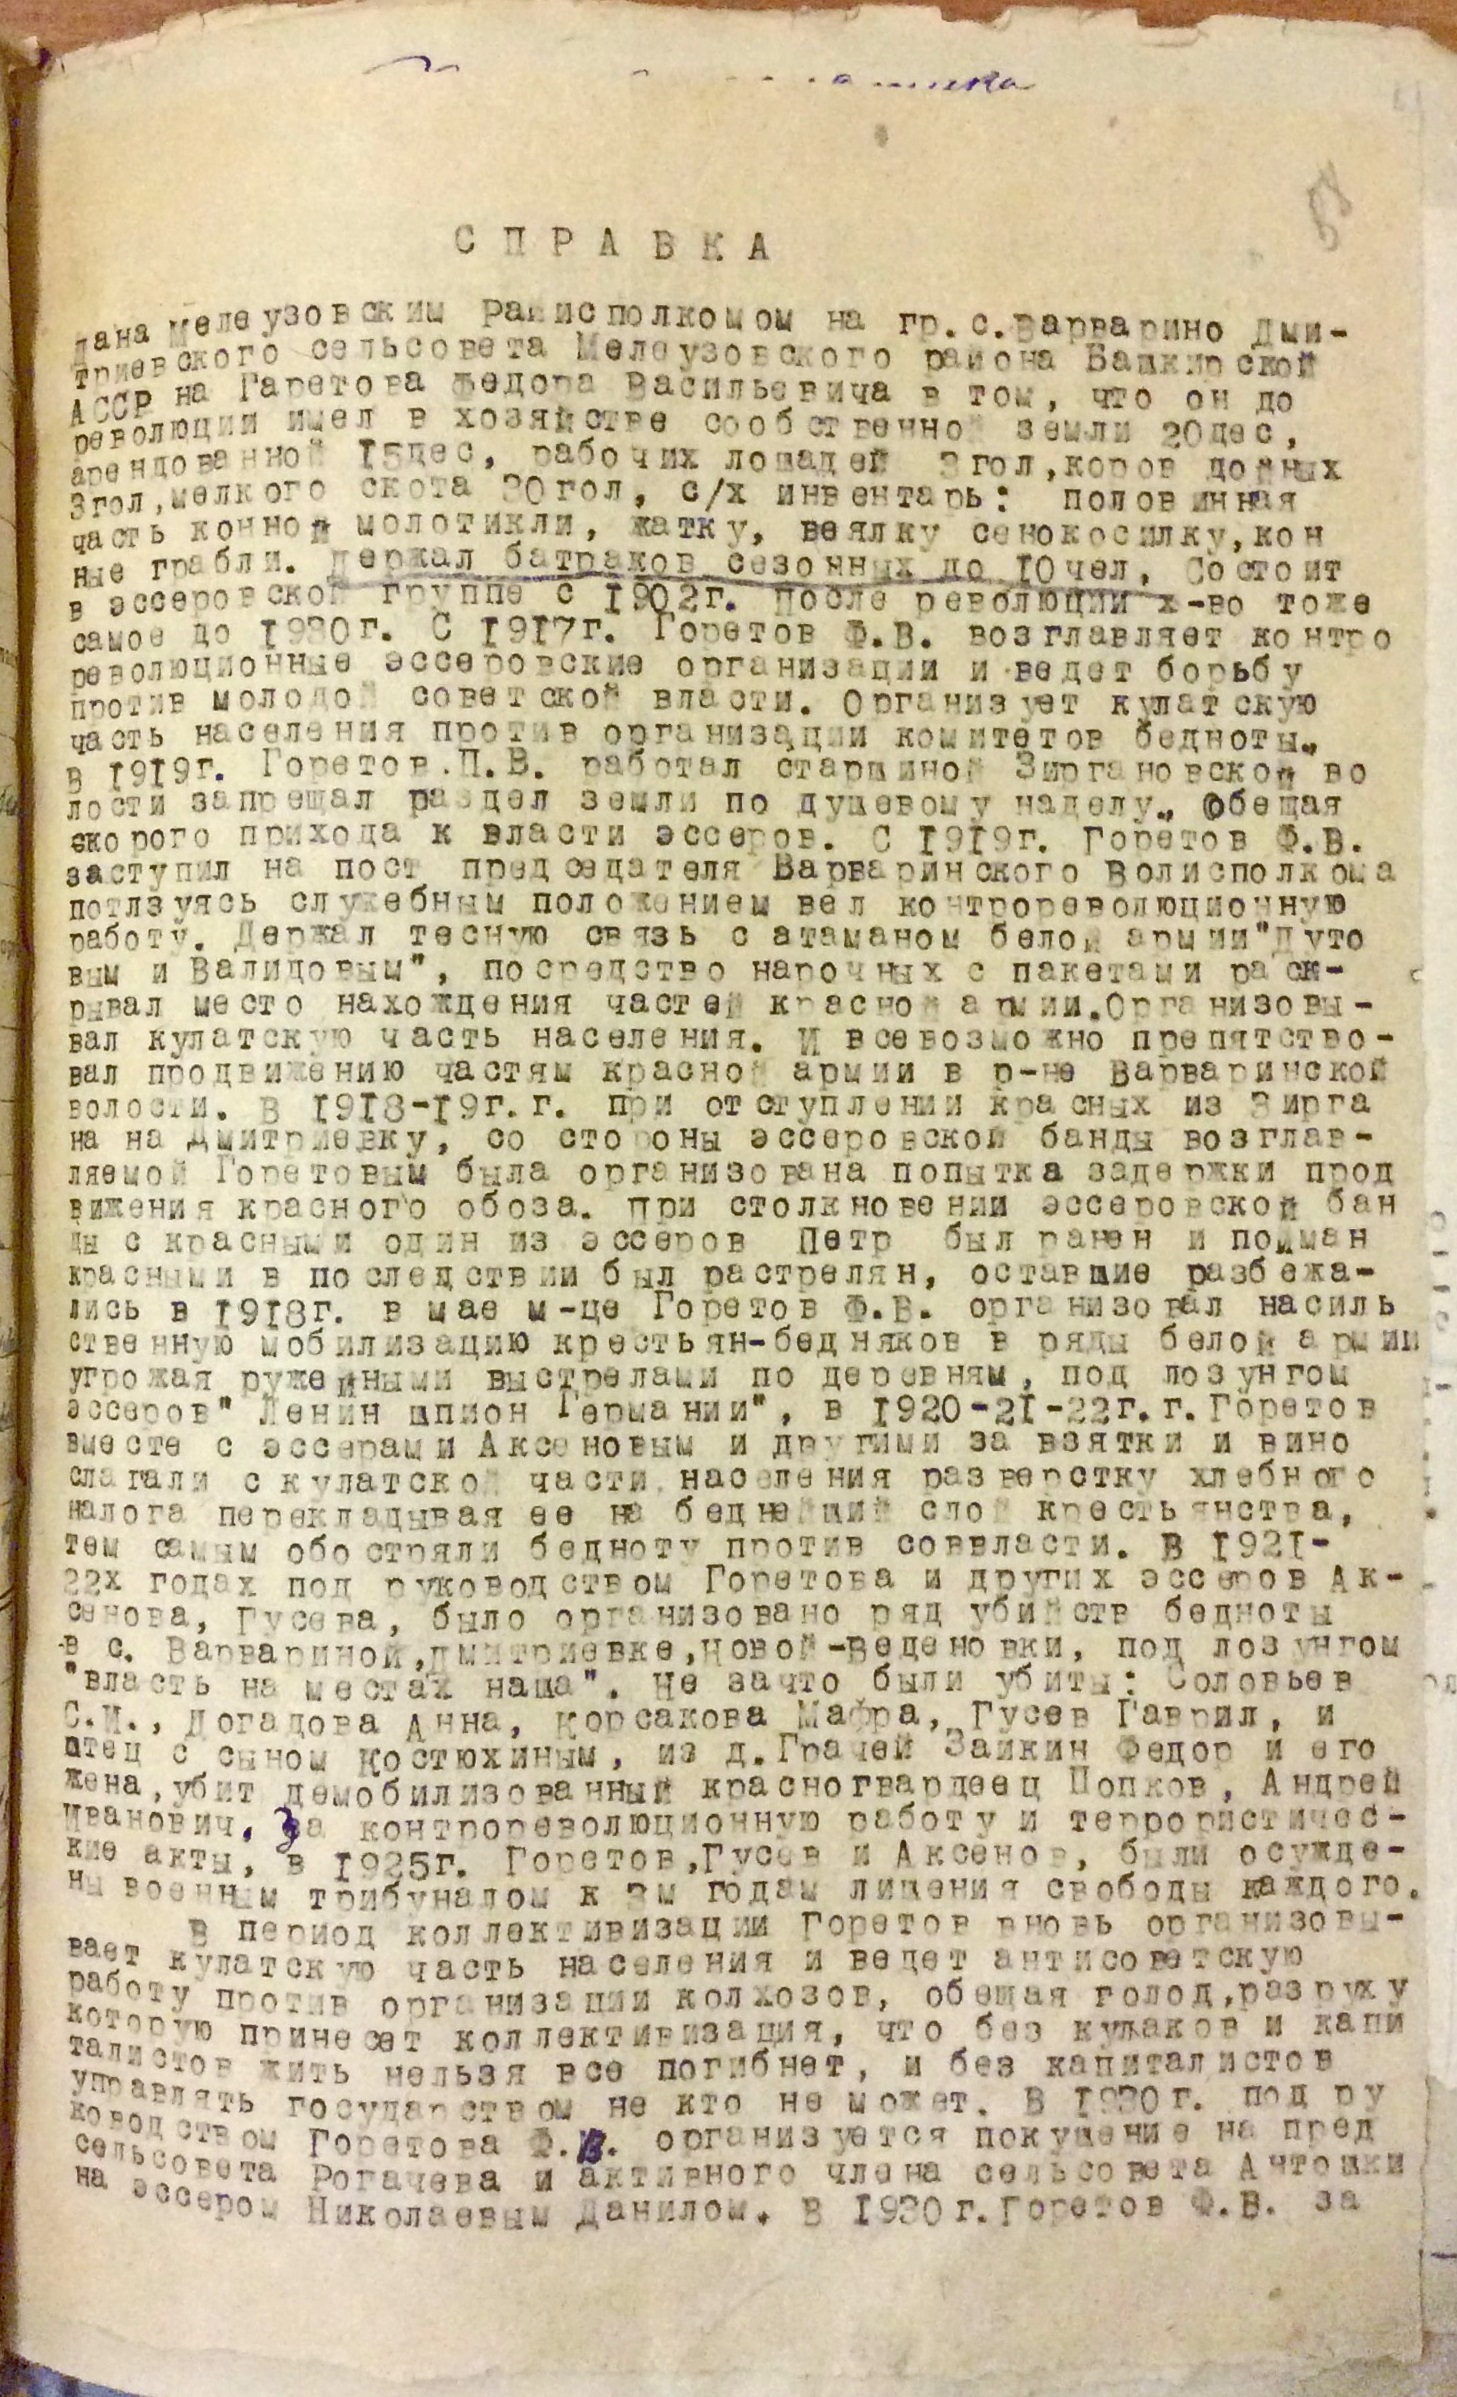 58
СПРАВКА
Дана Мелеузовским Райисполкомом на гр.с.Варварино Дми-
триевского сельсовета Мелеузовского района Башкирской
АССР на Гаретова Федора Васильевича в том, что он до
революции имел в хозяйстве сообственной земли 20дес,
арендованной 15дес, рабочих лошадей 3гол,коров дойных
3гол,мелкого скота 30гол, с/х инвентарь: половинная
часть конной молотикли, жатку, веялку сенокосилку,кон
ные грабли. Держал батраков сезонных до 10чел, Состоит
в эссеровской группе с 1902г. После революции х-во тоже
самое до 1930г. С 1917г. Горетов Ф.В. возглавляет контро
революционные эссеровские организации и ведет борьбу
против молодой советской власти. Организует кулатскую
часть населения против организации комитетов бедноты.,
В 1919г. Горетов.П.В. работал старшиной Зиргановской во
лости запрещал раздел земли по душевому наделу., Обещая
скорого прихода к власти эссеров. С 1919г. Горетов Ф.В.
заступил на пост председателя Варваринского Волисполкома
потлзуясь служебным положением вел контрореволюционную
работу. Держал тесную связь с атаманом белой армии"Дуто
вым и Валидовым", посредство нарочных с пакетами раск-
рывал место нахождения частей красной армии.Организовы-
вал кулатскую часть населения. И всевозможно препятство-
вал продвижению частям красной армии в р-не Варваринской
волости. В 1918-19г.г. при отступлении красных из Зирга
на на Дмитриевку, со стороны эссеровской банды возглав-
ляемой Горетовым была организована попытка задержки прод
вижения красного обоза. При столкновении эссеровской бан
ды с красными один из эссеров Петр был ранен и пойман
красными в последствии был растрелян, оставшие разбежа-
лись в 1918г. в мае м-це Горетов Ф.В. организовал насиль
ственную мобилизацию крестьян-бедняков в ряды белой армии
угрожая ружейными выстрелами по деревням, под лозунгом
эссеров"Ленин шпион Германии", в 1920-21-22г.г.Горетов
вместе с эссерами Аксеновым и другими за взятки и вино
слагали с кулатской части населения разверстку хлебного
налога перекладывая ее на беднейший слой крестьянства,
тем самым обостряли бедноту против соввласти. В 1921-
22х годах под руководством Горетова и других эссеров Ак-
сенова, Гусева, было организовано ряд убийств бедноты
в с. Варвариной,Дмитриевке,Новой-Веденовки, под лозунгом
"власть на местах наша". Не зачто были убиты: Соловьев
С.И., Догадова Анна, Корсакова Мафра, Гусев Гаврил, и
отец с сыном Костюхиным, из д.Грачей Заикин Федор и его
жена,убит демобилизованный красногвардеец Попков, Андрей
Иванович. За контрореволюционную работу и террористичес-
кие акты, в 1925г. Горетов,Гусев и Аксенов, были осужде-
ны военным трибуналом к 3м годам лишения свободы каждого.
В период коллективизации Горетов вновь организовы-
вает кулатскую часть населения и ведет антисоветскую
работу против организации колхозов, обещая голод,разруху
которую принесет коллективизация, что без кулаков и капи
талистов жить нельзя все погибнет, и без капиталистов
управлять государством не кто не может. В 1930г. под ру
ководством Горетова Ф.В. организуется покушение на пред
сельсовета Рогачева и активного члена сельсовета Антошки
на эссером Николаевым Данилом. В 1930г.Горетов Ф.В. за